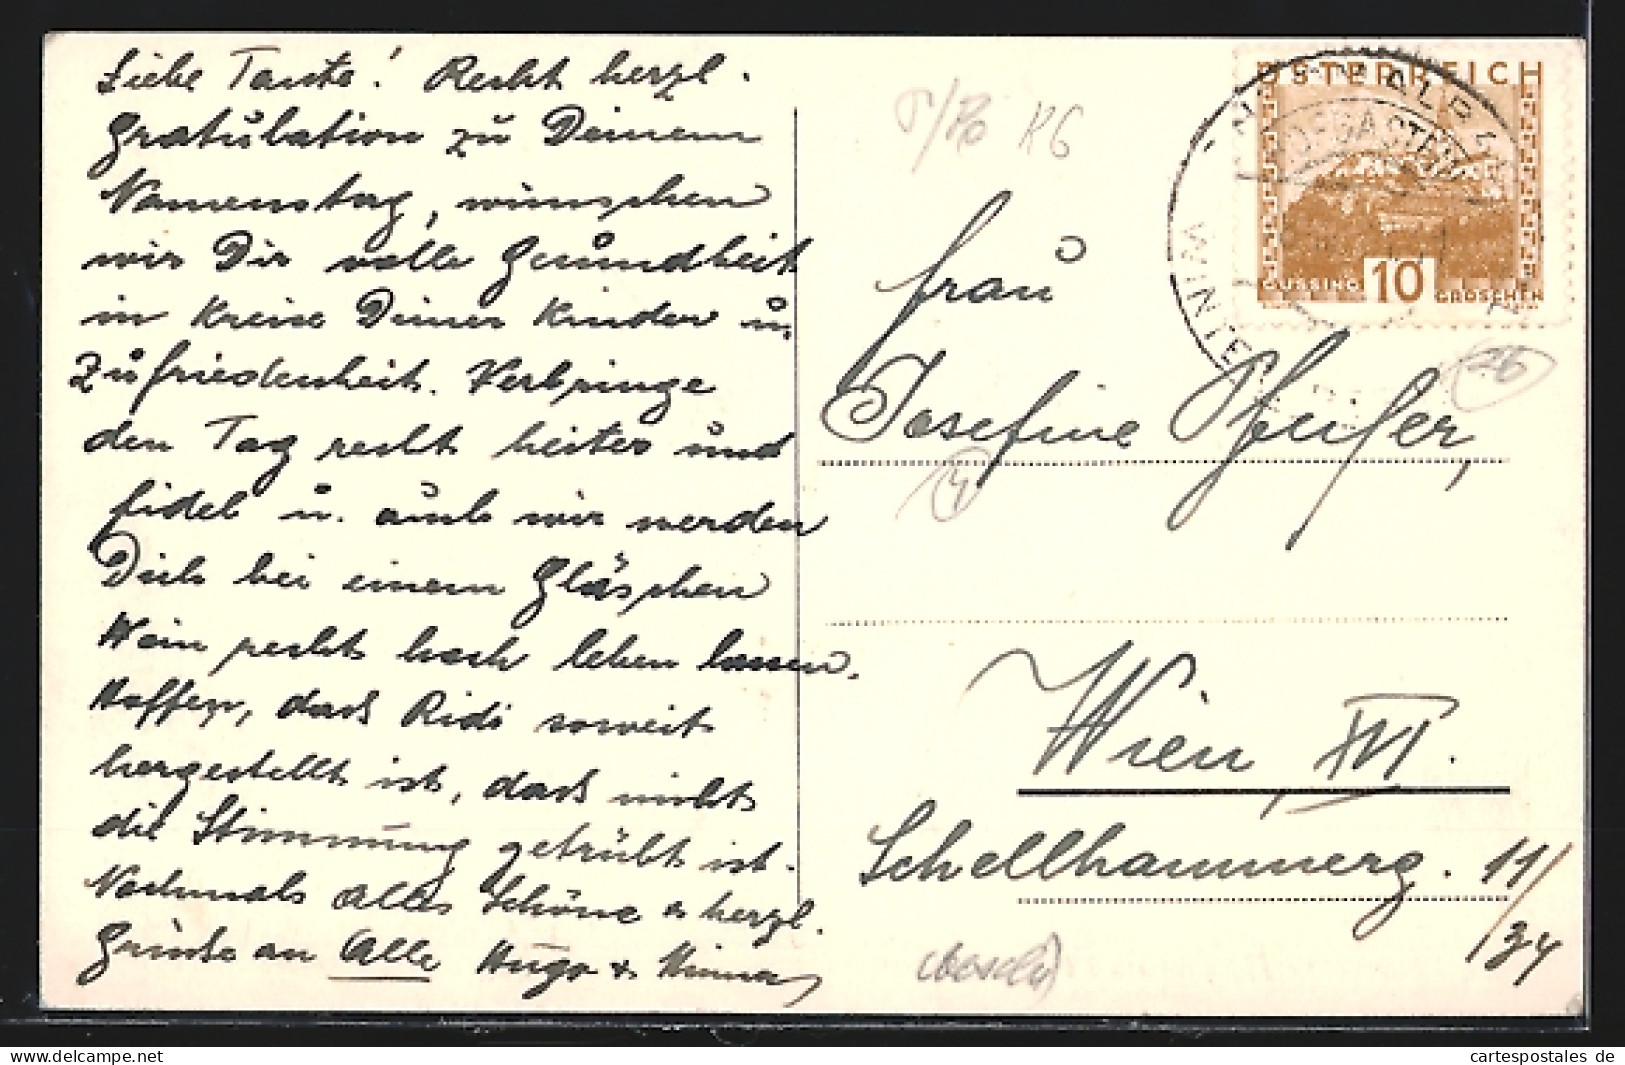 Liebe Tante! Recht herzl.
Gratulation zu Deinem
Namenstag, wünschen
wir Dir volle Gesundheit
im Kreise Deiner Kinder u.
Zufriedenheit. Verbringe
den Tag recht heiter und
fidel u. auch wir werden
Dich bei einem Gläschen
Wein recht hoch leben lassen.
Hoffen, dass Ridi soweit
hergestellt ist, dass nicht
die Stimmung getrübt ist.
Nochmals alles Schöne & herzl.
Grüsse an Alle Hugo &
K6
ÖSTERREICH
HOFGASTEIN
GÜSSING 10 GROSCHEN
Frau
Josefine Pfeifer,
26
Wien XVI.
Schellhammerg. 11/34
www.delcampe.net
cartespostales de